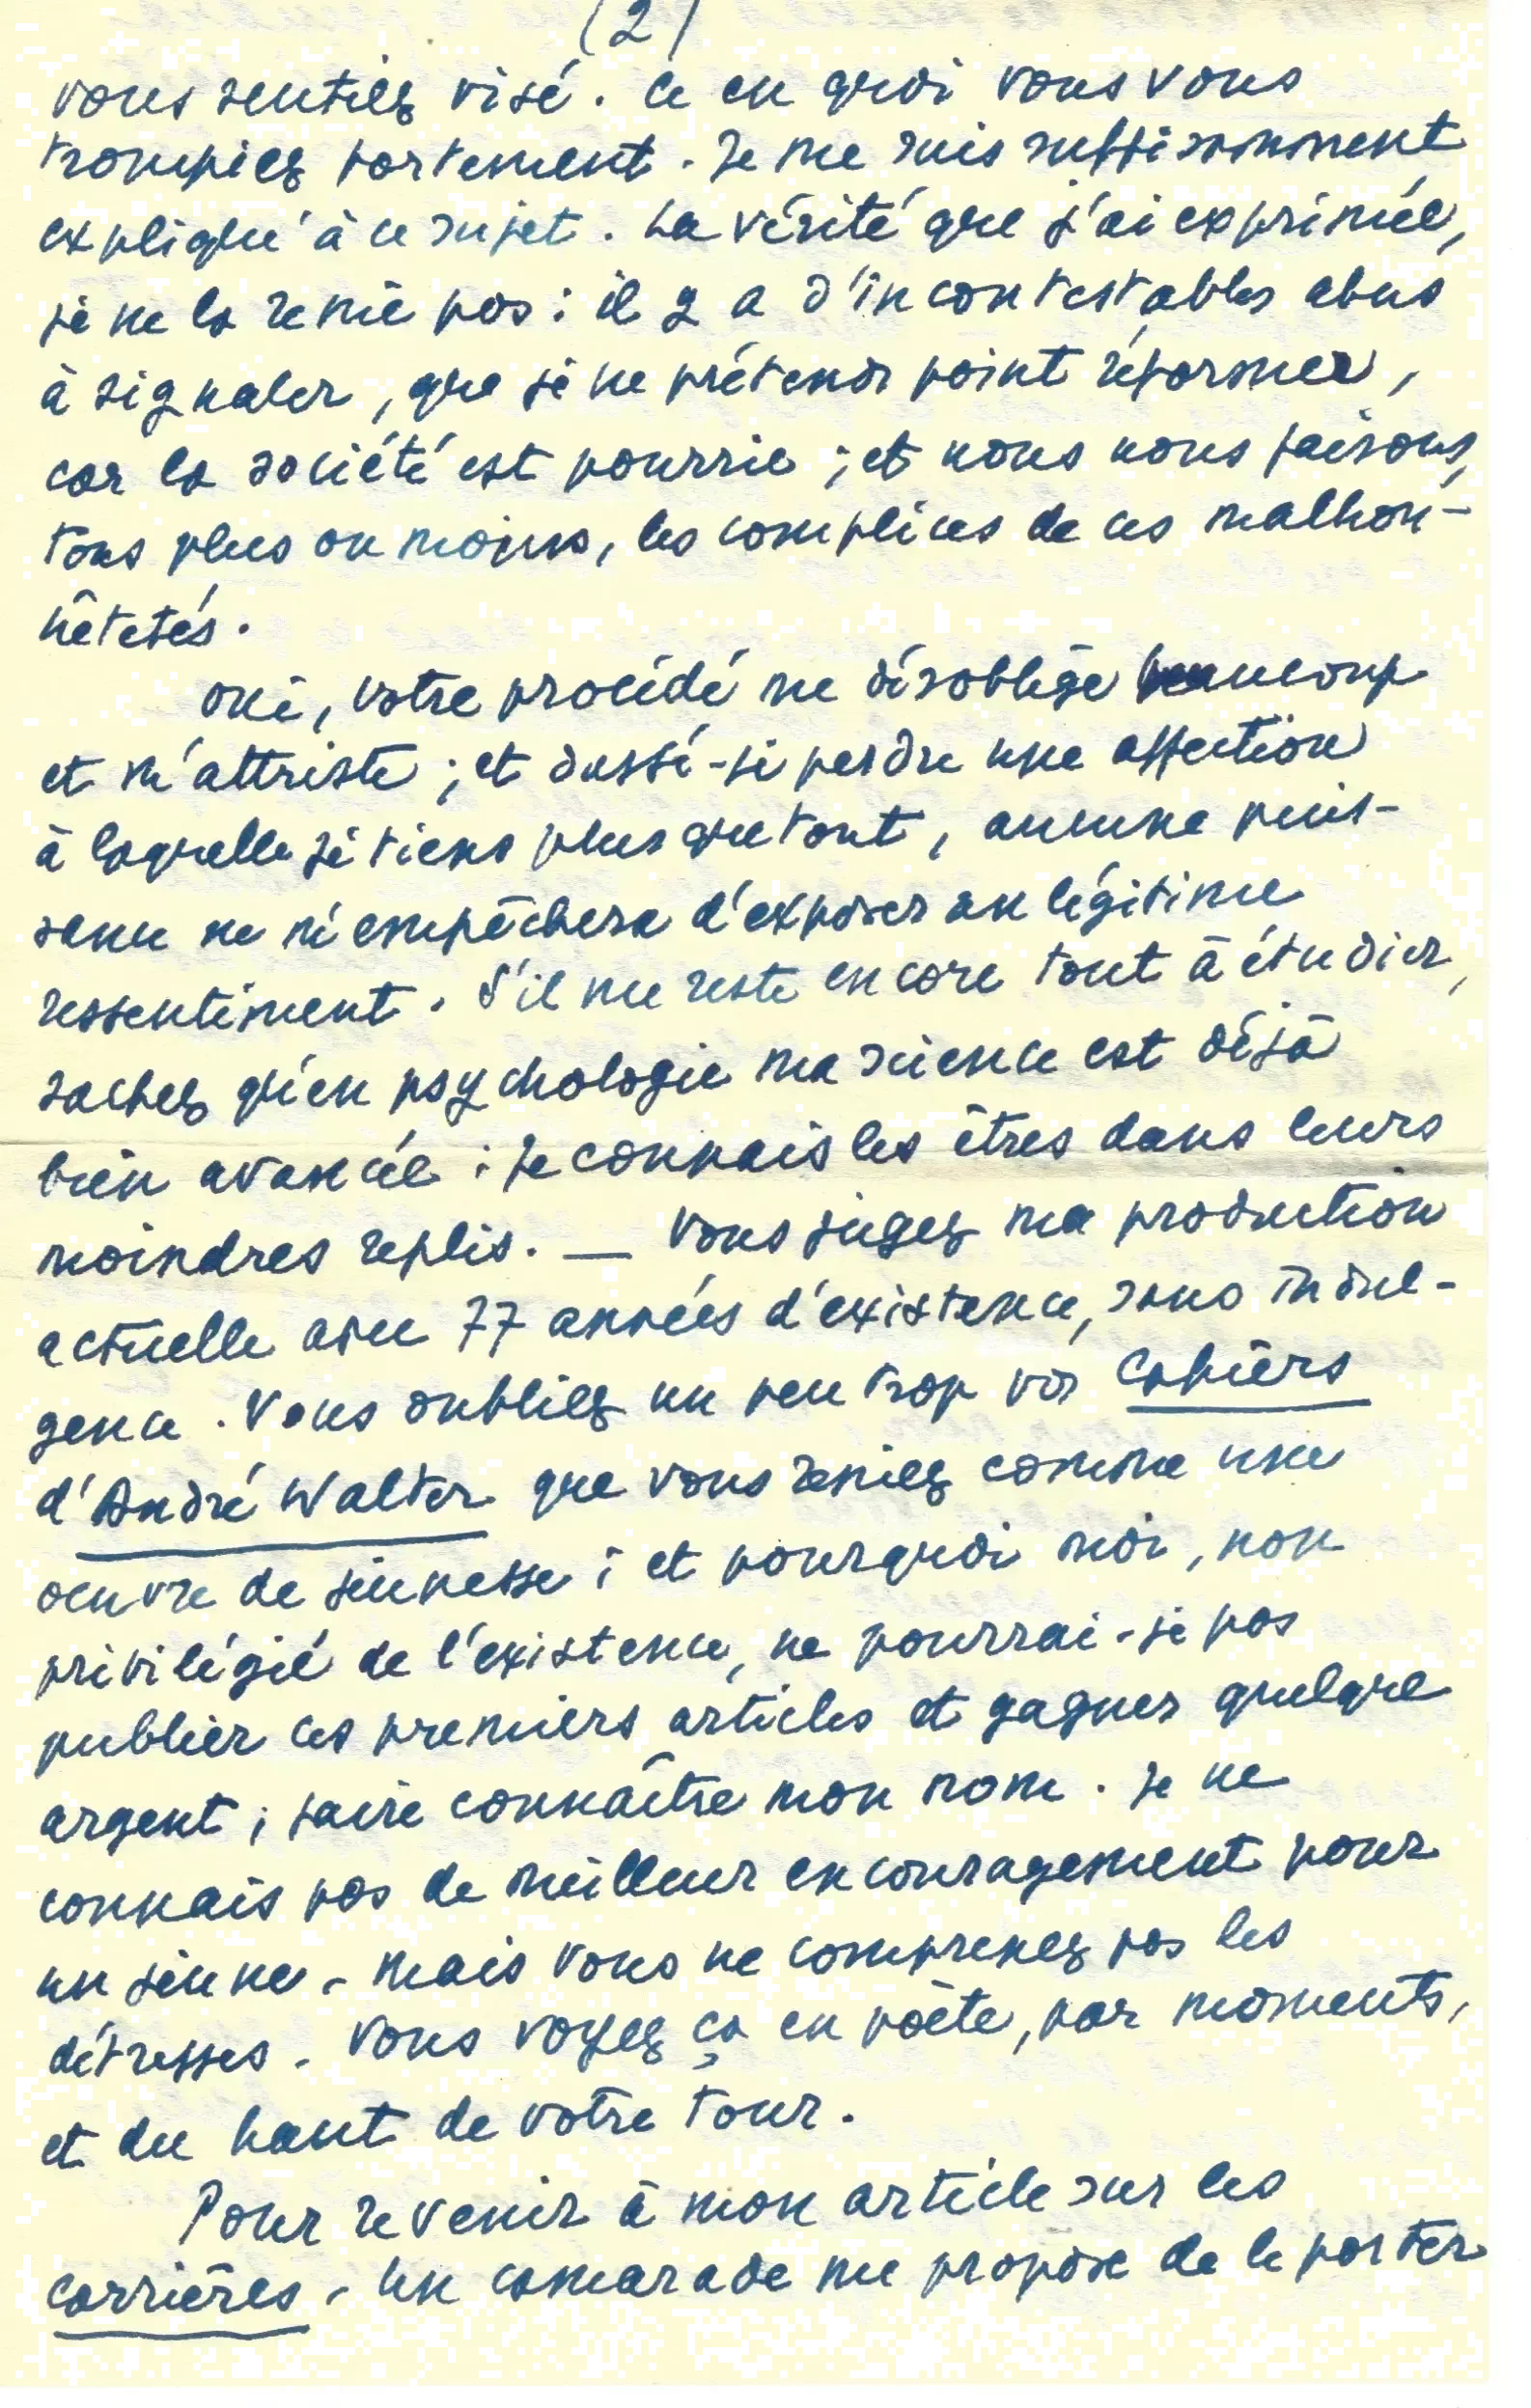 (2)
vous sentiez visé. Ce en quoi vous vous
trompiez fortement. Je me suis suffisamment
expliqué à ce sujet. La vérité que j'ai exprimée,
je ne la renie pas : il y a d'incontestables abus
à signaler, que je ne prétends point réformer,
car la société est pourrie ; et nous nous faisons,
tous plus ou moins, les complices de ces malhon-
nêtetés.
Oui, votre procédé me désoblige beaucoup
et m'attriste ; et dussé-je perdre une affection
à laquelle je tiens plus que tout, aucune puis-
sance ne m'empêchera d'exposer un légitime
ressentiment. S'il me reste encore tout à étudier,
sachez qu'en psychologie ma science est déjà
bien avancée ; je connais les êtres dans leurs
moindres replis. — Vous jugez ma production
actuelle avec 77 années d'existence, sans indul-
gence. Vous oubliez un peu trop vos Cahiers
d'André Walter que vous reniez comme une
oeuvre de jeunesse ; et pourquoi moi, non
privilégié de l'existence, ne pourrai-je pas
publier ces premiers articles et gagner quelque
argent ; faire connaître mon nom. Je ne
connais pas de meilleur encouragement pour
un jeune. Mais vous ne comprenez pas les
détresses. Vous voyez ça en poète, par moments,
et du haut de votre tour.
Pour revenir à mon article sur les
carrières. Un camarade me propose de le porter